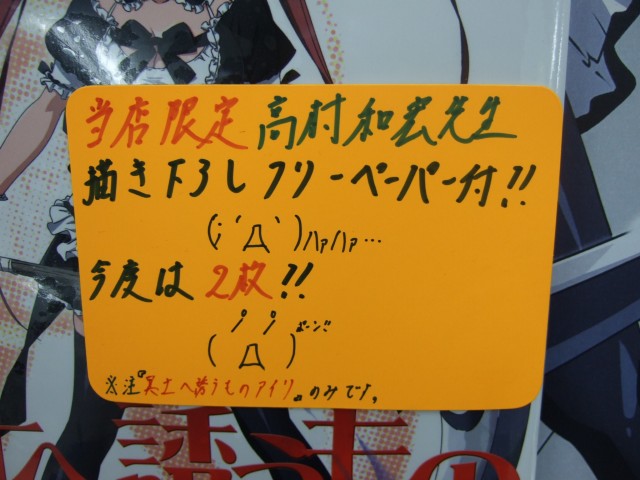 当店限定 高村和宏先生
描き下ろしフリーペーパー付!!
(;´Д`)ハァハァ…
今度は2枚!!
( Д ) ゜゜ ポーン!!
※注『冥土へ誘うものアイリ』のみです。
へ誘うもの